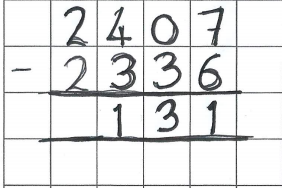 2407
- 2336
131